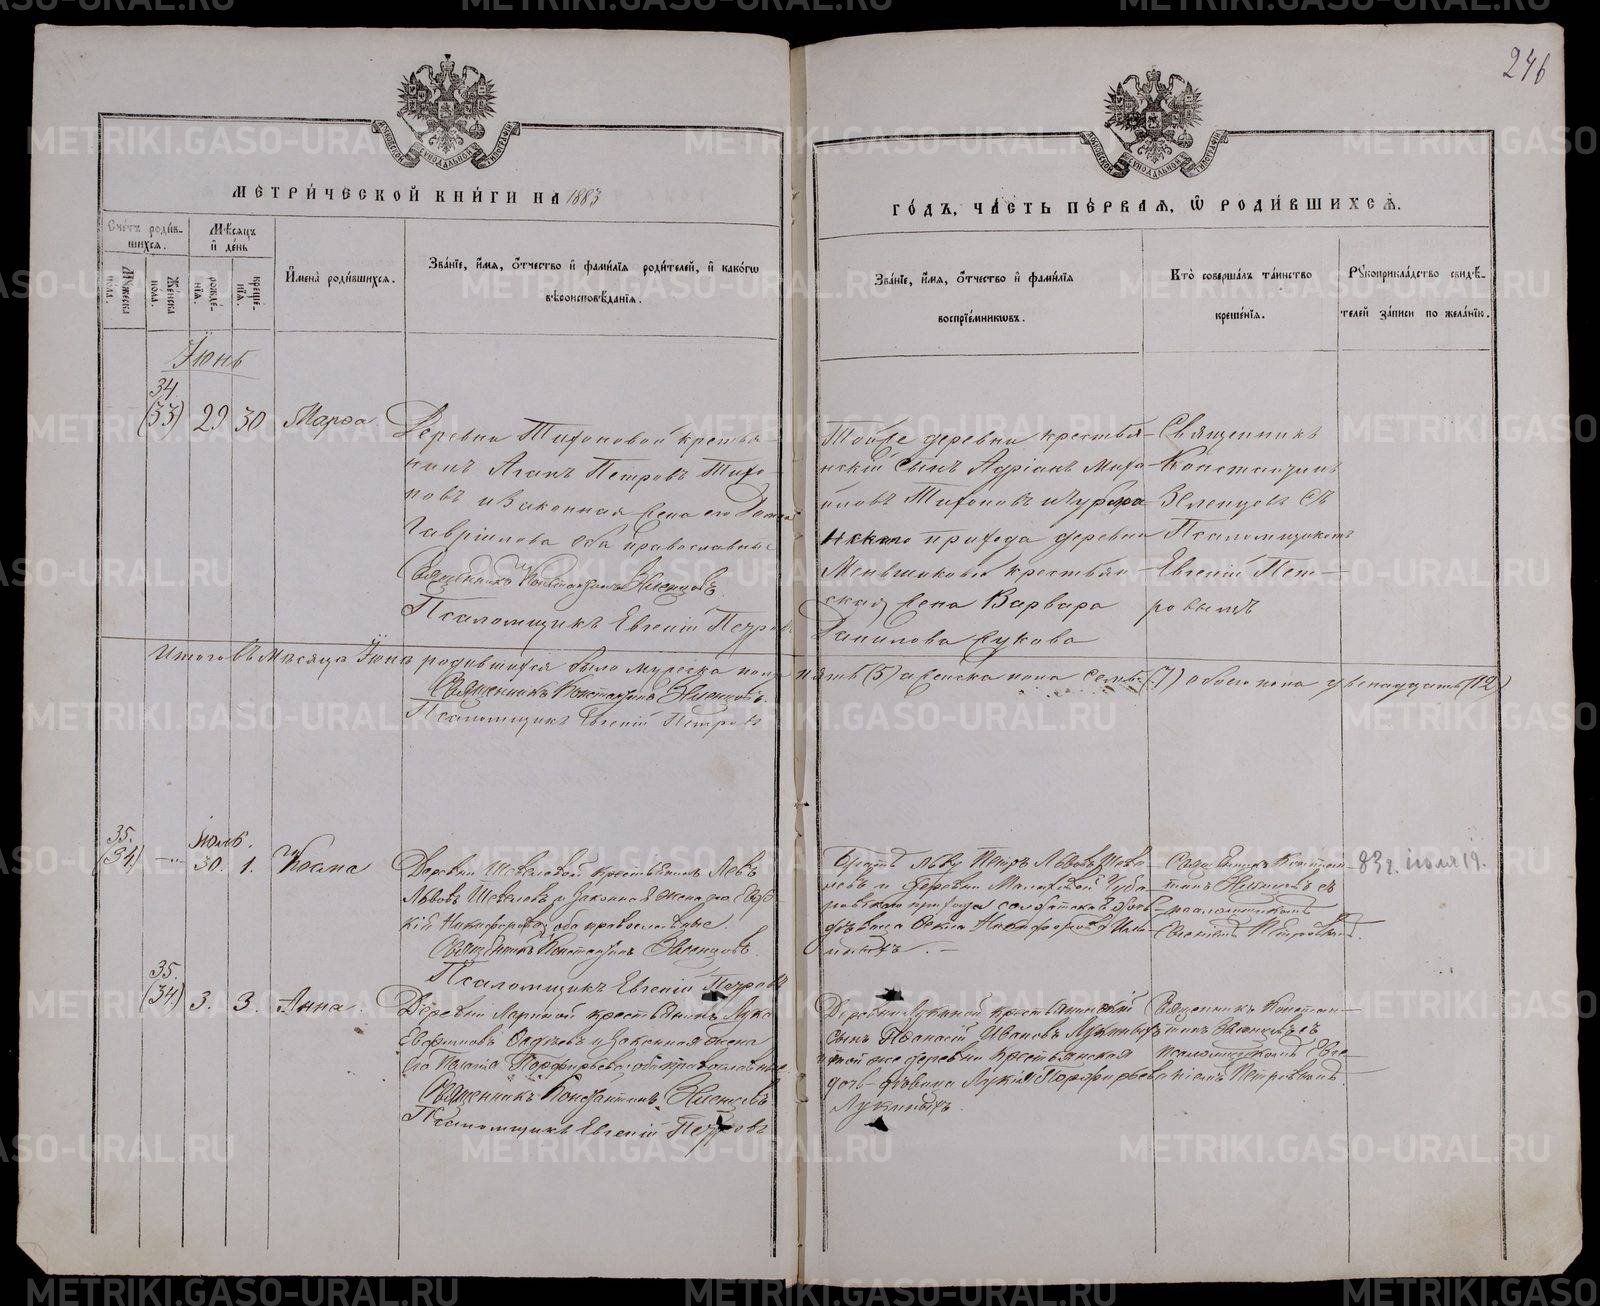 246
МОСКОВСКОЙ СѴНОДАЛЬНОЙ ТИПОГРАФІИ
МОСКОВСКОЙ СѴНОДАЛЬНОЙ ТИПОГРАФІИ
МЕТРИ́ЧЕСКОЙ КНИ́ГИ НА 1883
ГО́ДЪ, ЧА́СТЬ ПЕ́РВАѦ, Ѡ РОДИ́ВШИХСѦ.
Сче́тъ роди́в-
шихсѧ.
Му́жеска пола.
Же́нска пола.
Мѣ́сяцъ и́ де́нь
рожде́-
нїѧ.
креще́-
нїѧ.
И́мена̀ роди́вшихсѧ.
Зва́нїе, и́мѧ, ѻ́тчество и́ фами́лїѧ роди́телей, и́ како́гѡ
вѣроисповѣ́данїѧ.
Зва́нїе, и́мѧ, ѻ́тчество и́ фами́лїѧ
воспрїе́мникѡвъ.
Кто̀ соверша́лъ та́инство
креще́нїѧ.
Рꙋкоприкла́дство свидѣ́-
телей за́писи по жела́нїю.
Іюнь
34
(33) 29 30 Марѳа
Деревни Тифоновой крестья
нинъ Агапъ Петровъ Тифо-
новъ и законная жена его
Гавріилова оба православные
Священникъ Константинъ Зеленцовъ.
Псаломщикъ Евгеній Петровъ
Той же деревни крестья-
нскій сынъ Адріанъ
Тифоновъ и
прихода деревни
Меньшиковой крестьян-
ская жена Варвара
Данилова Сукова
Священникъ
Константинъ
Зеленцовъ съ
Псаломщикомъ
Евгеній Пет-
ровымъ
Итого въ Мѣсяцѣ Іюнѣ родившихся было мужеска пола пять (5) а женска пола семь (7) обоего пола двенадцать (12)
Священникъ Константинъ Зеленцовъ.
Псаломщикъ Евгеній Петровъ
Іюль.
35.
(34) 30. 1. Косма
Деревни Шевелевой крестьянинъ Левъ
Львовъ Шевелевъ и законная жена его
Никифорова, оба православные.
Священникъ Константинъ Зеленцовъ.
Псаломщикъ Евгеній Петровъ
Братъ Льву Петръ Львовъ Шеве-
левъ и деревни
прихода солдатская дочь
дѣвица Никифорова
Священникъ Констан-
тинъ Зеленцовъ съ
псаломщикомъ
Евгеніемъ Петровымъ.
83 г. іюля 19.
35.
(34) 3. 3. Анна.
Деревни крестьянинъ Лука
и законная жена
его Порфирьева, оба православные
Священникъ Константинъ Зеленцовъ
Псаломщикъ Евгеній Петровъ
Деревни Лукиной крестьянскій
сынъ Иванов Лукиныхъ
той же деревни крестьянская
дочь дѣвица Порфирьева
Лукиныхъ.
Священникъ Констан-
тинъ Зеленцовъ съ
псаломщикомъ Евге-
ніемъ Петровымъ
METRIKI.GASO-URAL.RU